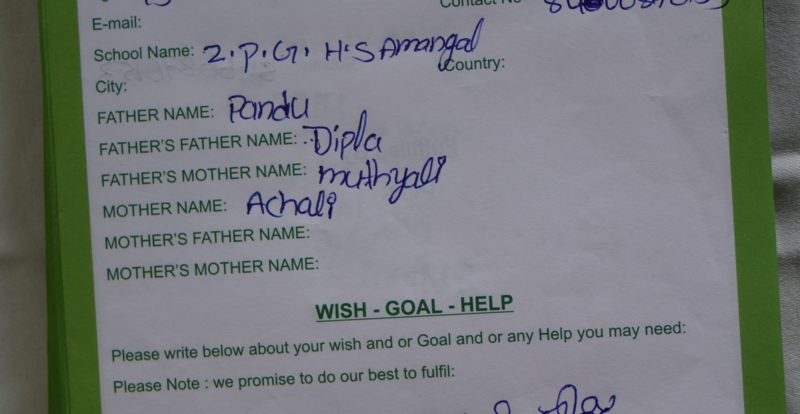 Contact No
E-mail:
School Name: Z.P.G. H.S Amangal
City: Country:
FATHER NAME: Pandu
FATHER'S FATHER NAME: Dipla
FATHER'S MOTHER NAME: muthyali
MOTHER NAME: Achali
MOTHER'S FATHER NAME:
MOTHER'S MOTHER NAME:
WISH - GOAL - HELP
Please write below about your wish and or Goal and or any Help you may need:
Please Note : we promise to do our best to fulfil: